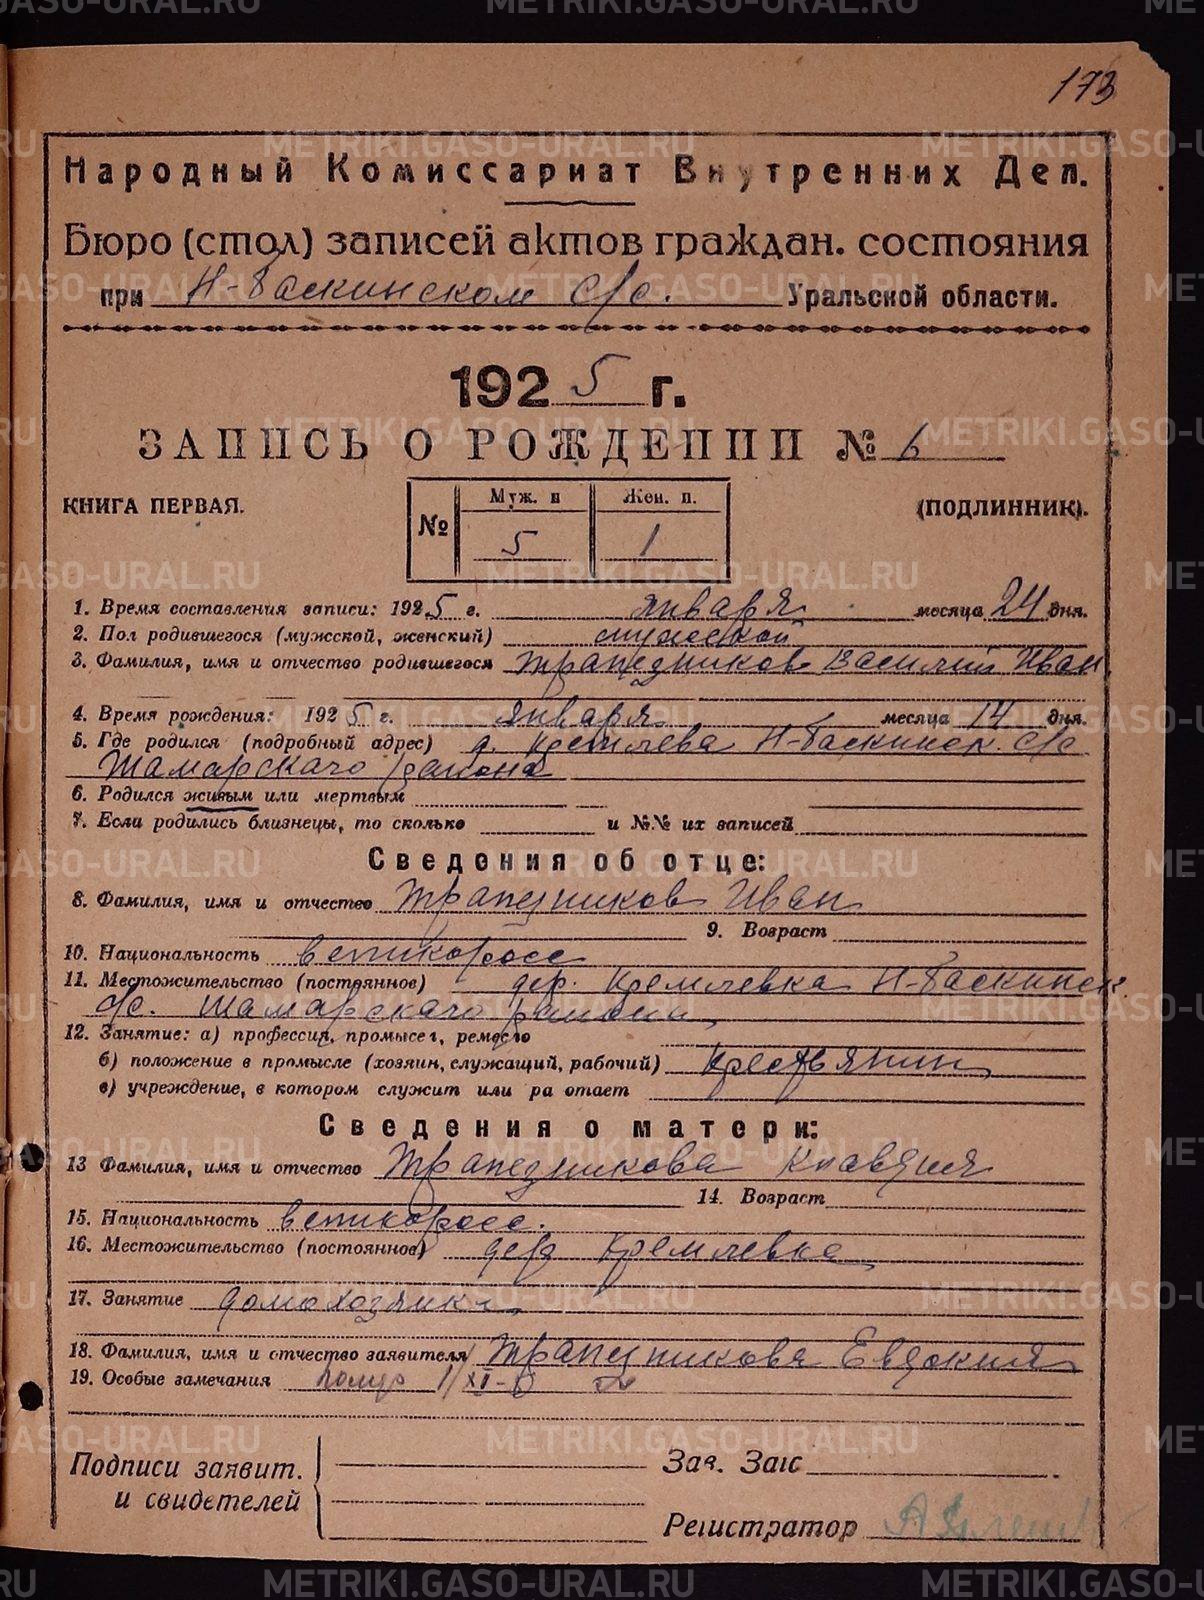 173
Народный Комиссариат Внутренних Дел.
Бюро (стол) записей актов граждан. состояния
при Н-Баскинском с/с. Уральской области.
1925 г.
ЗАПИСЬ О РОЖДЕНИИ № 6
КНИГА ПЕРВАЯ.
№ Муж. п 5 Жен. п. 1
(ПОДЛИННИК).
1. Время составления записи: 1925 г. января месяца 24 дня.
2. Пол родившегося (мужской, женский) мужской
3. Фамилия, имя и отчество родившегося Трапезников Василий Иван
4. Время рождения: 1925 г. января месяца 14 дня.
5. Где родился (подробный адрес) д. Кремлева Н-Баскинск. с/с
Шамарского района
6. Родился живым или мертвым
7. Если родились близнецы, то сколько и №№ их записей
Сведения об отце:
8. Фамилия, имя и отчество Трапезников Иван
9. Возраст
10. Национальность великоросс
11. Местожительство (постоянное) дер. Кремлевка Н-Баскинск.
с/с. Шамарского района
12. Занятие: а) профессия, промысел, ремесло
б) положение в промысле (хозяин, служащий, рабочий) Крестьянин
в) учреждение, в котором служит или ра отает
Сведения о матери:
13 Фамилия, имя и отчество Трапезникова Клавдия
14. Возраст
15. Национальность великоросс.
16. Местожительство (постоянное) дер Кремлевка
17. Занятие домохозяйка
18. Фамилия, имя и отчество заявителя Трапезникова Евдокия
19. Особые замечания
Подписи заявит.
и свидетелей
Зав. Загс
Регистратор
METRIKI.GASO-URAL.RU